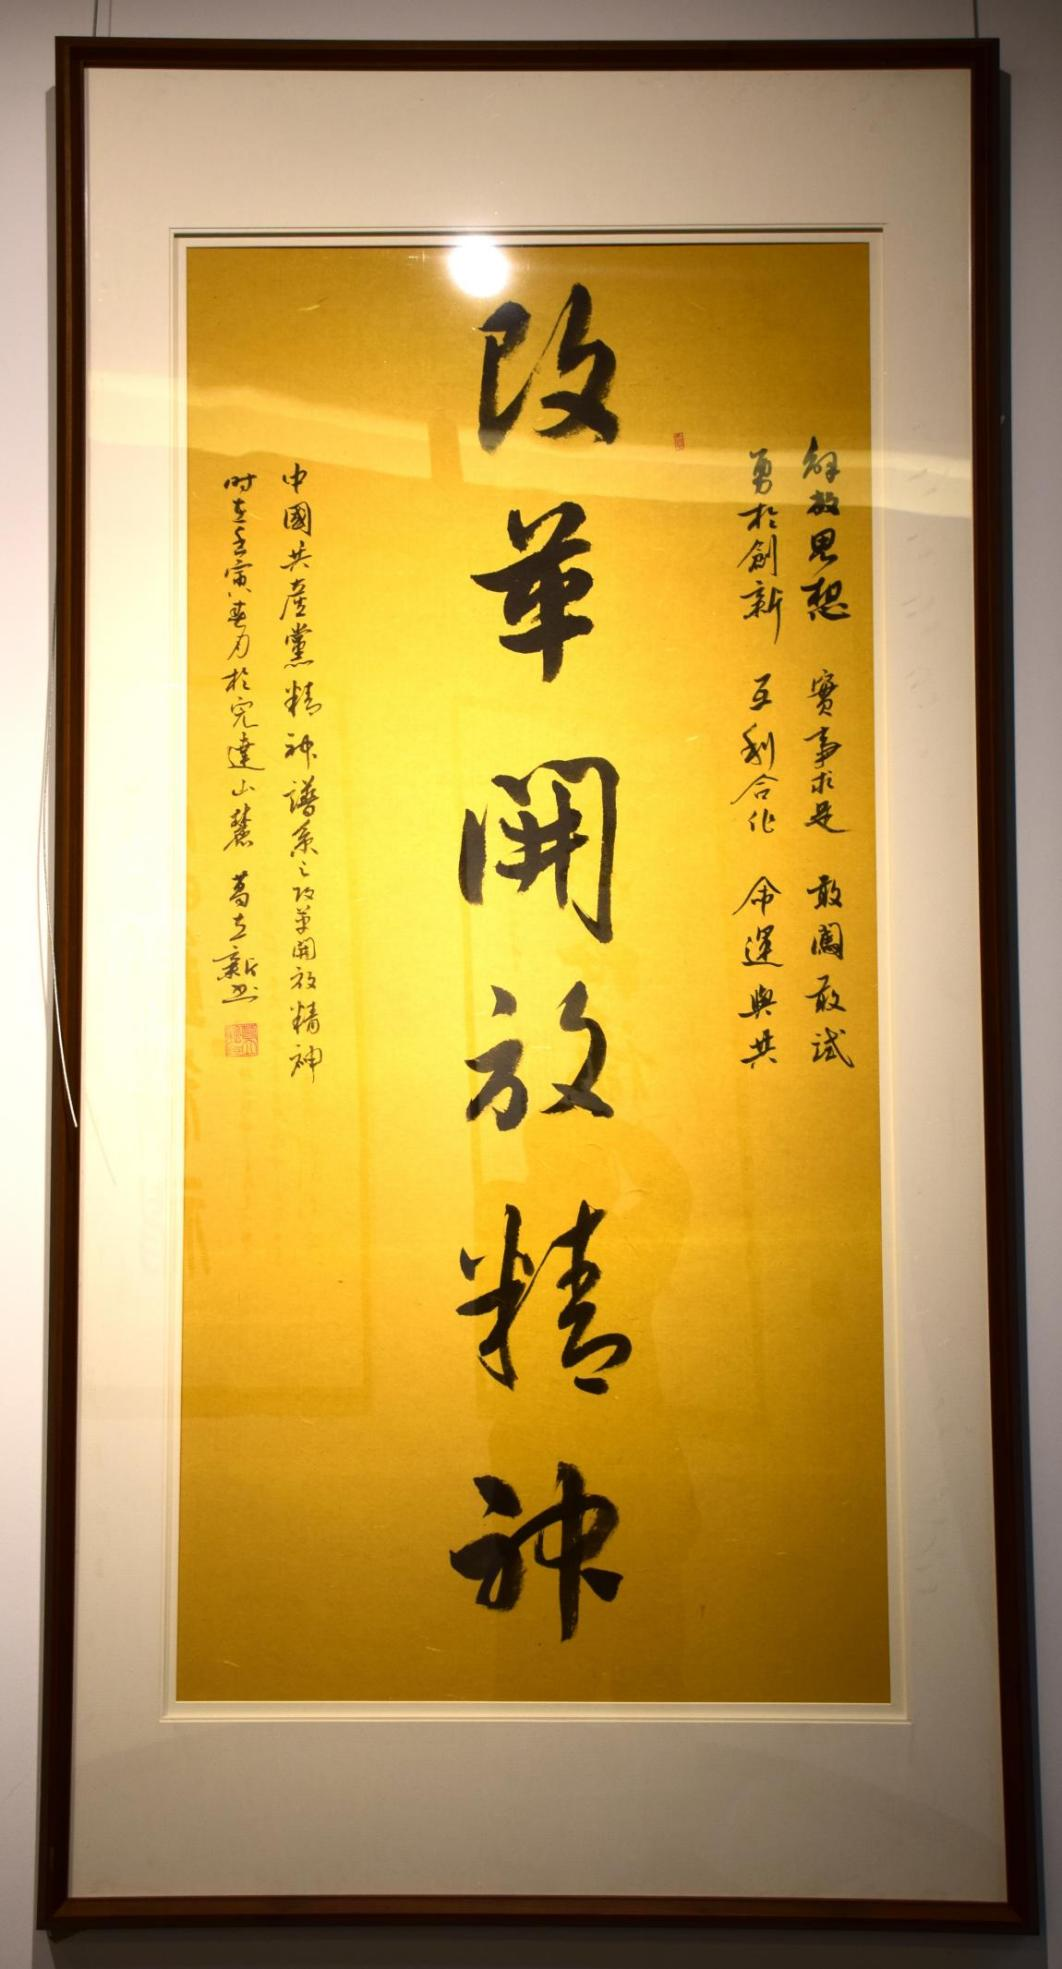 解放思想 實事求是 敢闖敢試
勇於創新 互利合作 命運與共
改革開放精神
中國共產黨精神譜系之改革開放精神
时在壬寅春月於完達山麓 葛立新书